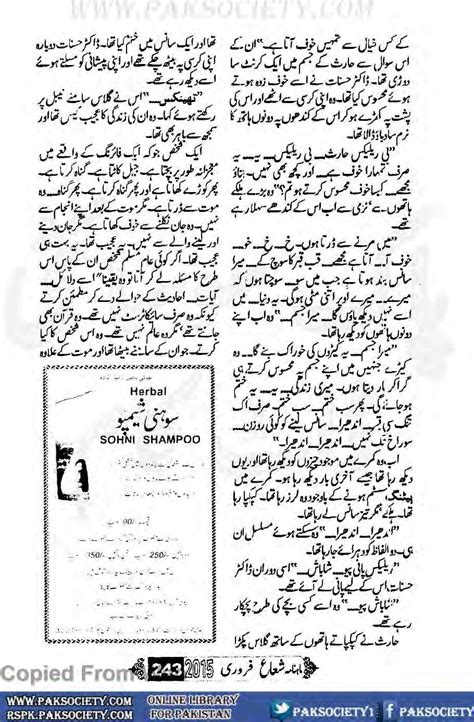 WWW.PAKSOCIETY.COM
کے کس خیال سے تمہیں خوف آتا ہے۔" ان کے
اس سوال سے حارث کے جسم میں ایک کرنٹ سا
دوڑی تھا۔ ڈاکٹر حسنات نے اسے خوف زدہ ہوتے
ہوئے محسوس کیا تھا۔ وہ اپنی کرسی سے اٹھے اور اس کی
پشت پہ کھڑے ہو کر اس کے کندھوں پہ دونوں ہاتھوں کا
نرم سا دباؤ ڈالا تھا۔
"بی ریلیکس حارث۔ بی ریلیکس۔ یہ۔ یہ
صرف تمہارا خوف ہے۔ اور کچھ بھی نہیں۔ بتاؤ
مجھے۔ کیسا خوف محسوس کرتے ہو تم؟" وہ بڑے ہلکے
ہاتھوں سے نرمی سے اب اس کے کندھے سہلا رہے
تھے۔
"میں مرنے سے ڈرتا ہوں۔ خ۔ خ۔ خو۔
خوف آتا ہے مجھے۔ قب قبر کا سوچ کے۔ میرا
سانس بند ہوتا ہے جب میں سو۔ سوچتا ہوں کہ
میرے۔ میرے اوپر اتنی مٹی ہوگی۔ یہ دنیا۔ میں
نہیں ہوں گا۔ میرا جسم۔" وہ اب اپنے
دونوں ہاتھوں کو دیکھ رہا تھا۔
"میرا جسم۔ یہ کیڑوں کی خوراک بنے گا۔ وہ
کیڑے جنہیں میں اپنے جسم پہ محسوس کروں تو
گرا کر مار دیتا ہوں۔ میری زندگی۔ یہ۔ یہ ختم
ہو جائے گی۔ پھر سب ختم۔ سب ختم۔ صرف اک
تنگ سی قبر۔ اندھیرا۔ سانس لینے کو کوئی روزن۔
سوراخ تک نہیں۔ اندھیرا۔ اندھیرا۔"
اب وہ کمرے میں موجود چیزوں کو دیکھ رہا تھا اور یوں
دیکھ رہا تھا جیسے آخری بار دیکھ رہا ہو۔ کمرے کے
ہیٹنگ سسٹم ہونے کے باوجود وہ لرز رہا تھا۔ کپکپا رہا
تھا۔ ہلکے ہلکے مگر تیز سانس لے رہا تھا۔
"اندھیرا۔ اندھیرا۔" وہ سسکتے ہوئے مسلسل ان
ہی۔ دو الفاظ کو دہرائے جا رہا تھا۔
"ریلیکس پانی پیو۔ شاباش۔" اسی دوران ڈاکٹر
حسنات اس کے لیے پانی لے آئے تھے۔
"شاباش پیو۔" وہ اسے کسی بچے کی طرح پچکار
رہے تھے۔
حارث نے کپکپاتے ہاتھوں کے ساتھ گلاس پکڑا
تھا اور ایک سانس میں ختم کیا تھا۔ ڈاکٹر حسنات دوبارہ
اپنی کرسی پہ بیٹھ چکے تھے اور اپنی پیشانی کو مسلتے ہوئے
اسے دیکھ رہے تھے۔
"تھینکس۔" اس نے گلاس سامنے ٹیبل پر
رکھتے ہوئے کہا۔ وہ ان کی زندگی کا عجیب کیس تھا۔
سمجھ سے باہر بھی تھا۔
ایک شخص جو کہ ایک فائرنگ کے واقعے میں
معجزانہ طور پر بچتا ہے۔ جیل کاٹتا ہے۔ گناہ کرتا ہے۔
پھر کوڑے کھاتا ہے۔ گناہ سے ڈرتا ہے۔ پھر گناہ۔ وہ
موت سے ڈرتا ہے۔ مگر موت کے بعد اپنے انجام سے
نہیں۔ وہ جان نکلنے سے خوف کھاتا ہے۔ مگر جان دینے
اور لینے والے سے نہیں۔ وہ عجیب تھا۔ یہ بہت ہی
عجیب تھا۔ اگر کوئی عام مسلم شخص ان کے پاس اس
طرح کا مسئلہ لے کر آتا تو وہ یقیناً اسے دلائل۔
آیات۔ احادیث کے حوالے دے کر مطمئن کرتے
تھے۔ وہ صرف سائیکاٹرسٹ نہیں تھے۔ وہ قرآن بھی
جانتے تھے مگر وہ عالم نہیں تھے۔ وہ اس شخص کا کیا
کرتے۔ جو ان کے سامنے بیٹھا تھا اور موت کے علاوہ
Herbal
سوہنی شیمپو
SOHNI SHAMPOO
قیمت -/90 روپے
-/250 روپے
-/350 روپے
Copied From
243 2015 ماہنامہ شعاع فروری
WWW.PAKSOCIETY.COM
RSPK.PAKSOCIETY.COM
ONLINE LIBRARY
FOR PAKISTAN
PAKSOCIETY1
PAKSOCIETY